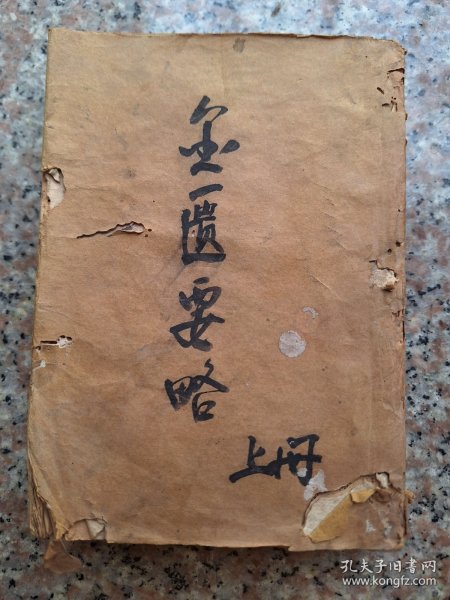 金匱要略
上册
孔夫子旧书网
www.kongfz.com